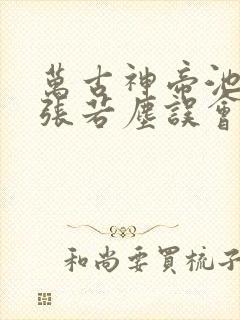 萬古神帝池
張若塵誤會
和尚要買梳子